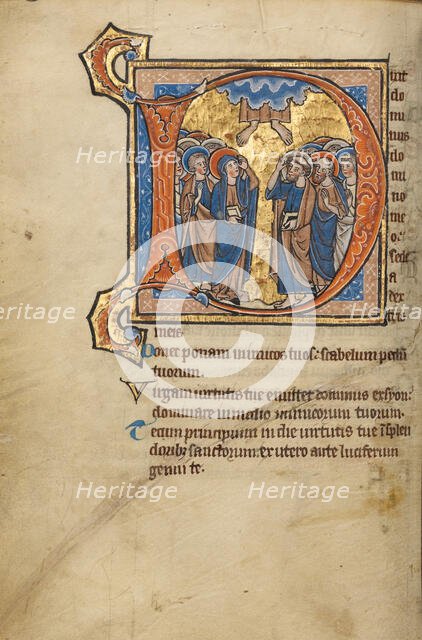 D
ixit
do
mi
nus
do
mi
no
me
o:
sede
a
ex
tris
meis.
Donec ponam inimicos tuos: scabelum pedum
tuorum.
Virgam uirtutis tue emittet dominus ex syon:
dominare in medio inimicorum tuorum.
Tecum principium in die uirtutis tue in splen
doribus sanctorum: ex utero ante luciferum
genui te.
Heritage
Heritage
Heritage
Heritage
Heritage
Heritage
Heritage
Heritage